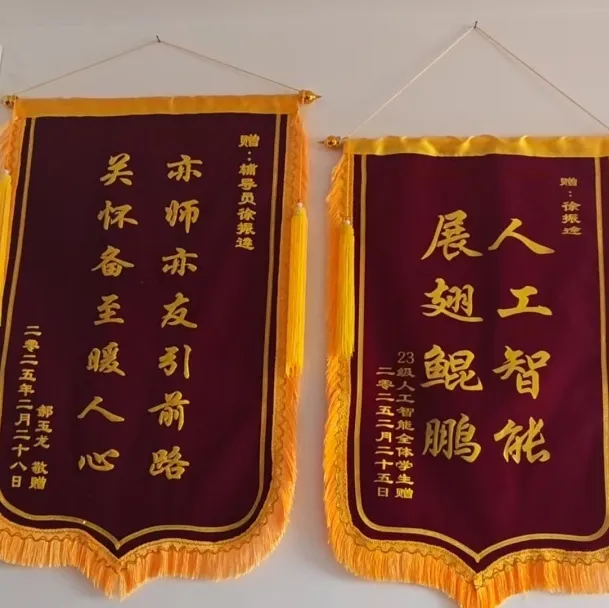 赠：辅导员徐振逵
亦师亦友引前路
关怀备至暖人心
郝玉龙 敬赠
二零二五年二月二十八日
赠：徐振逵
人工智能
展翅鲲鹏
23级人工智能全体学生赠
二零二五二月二十五日